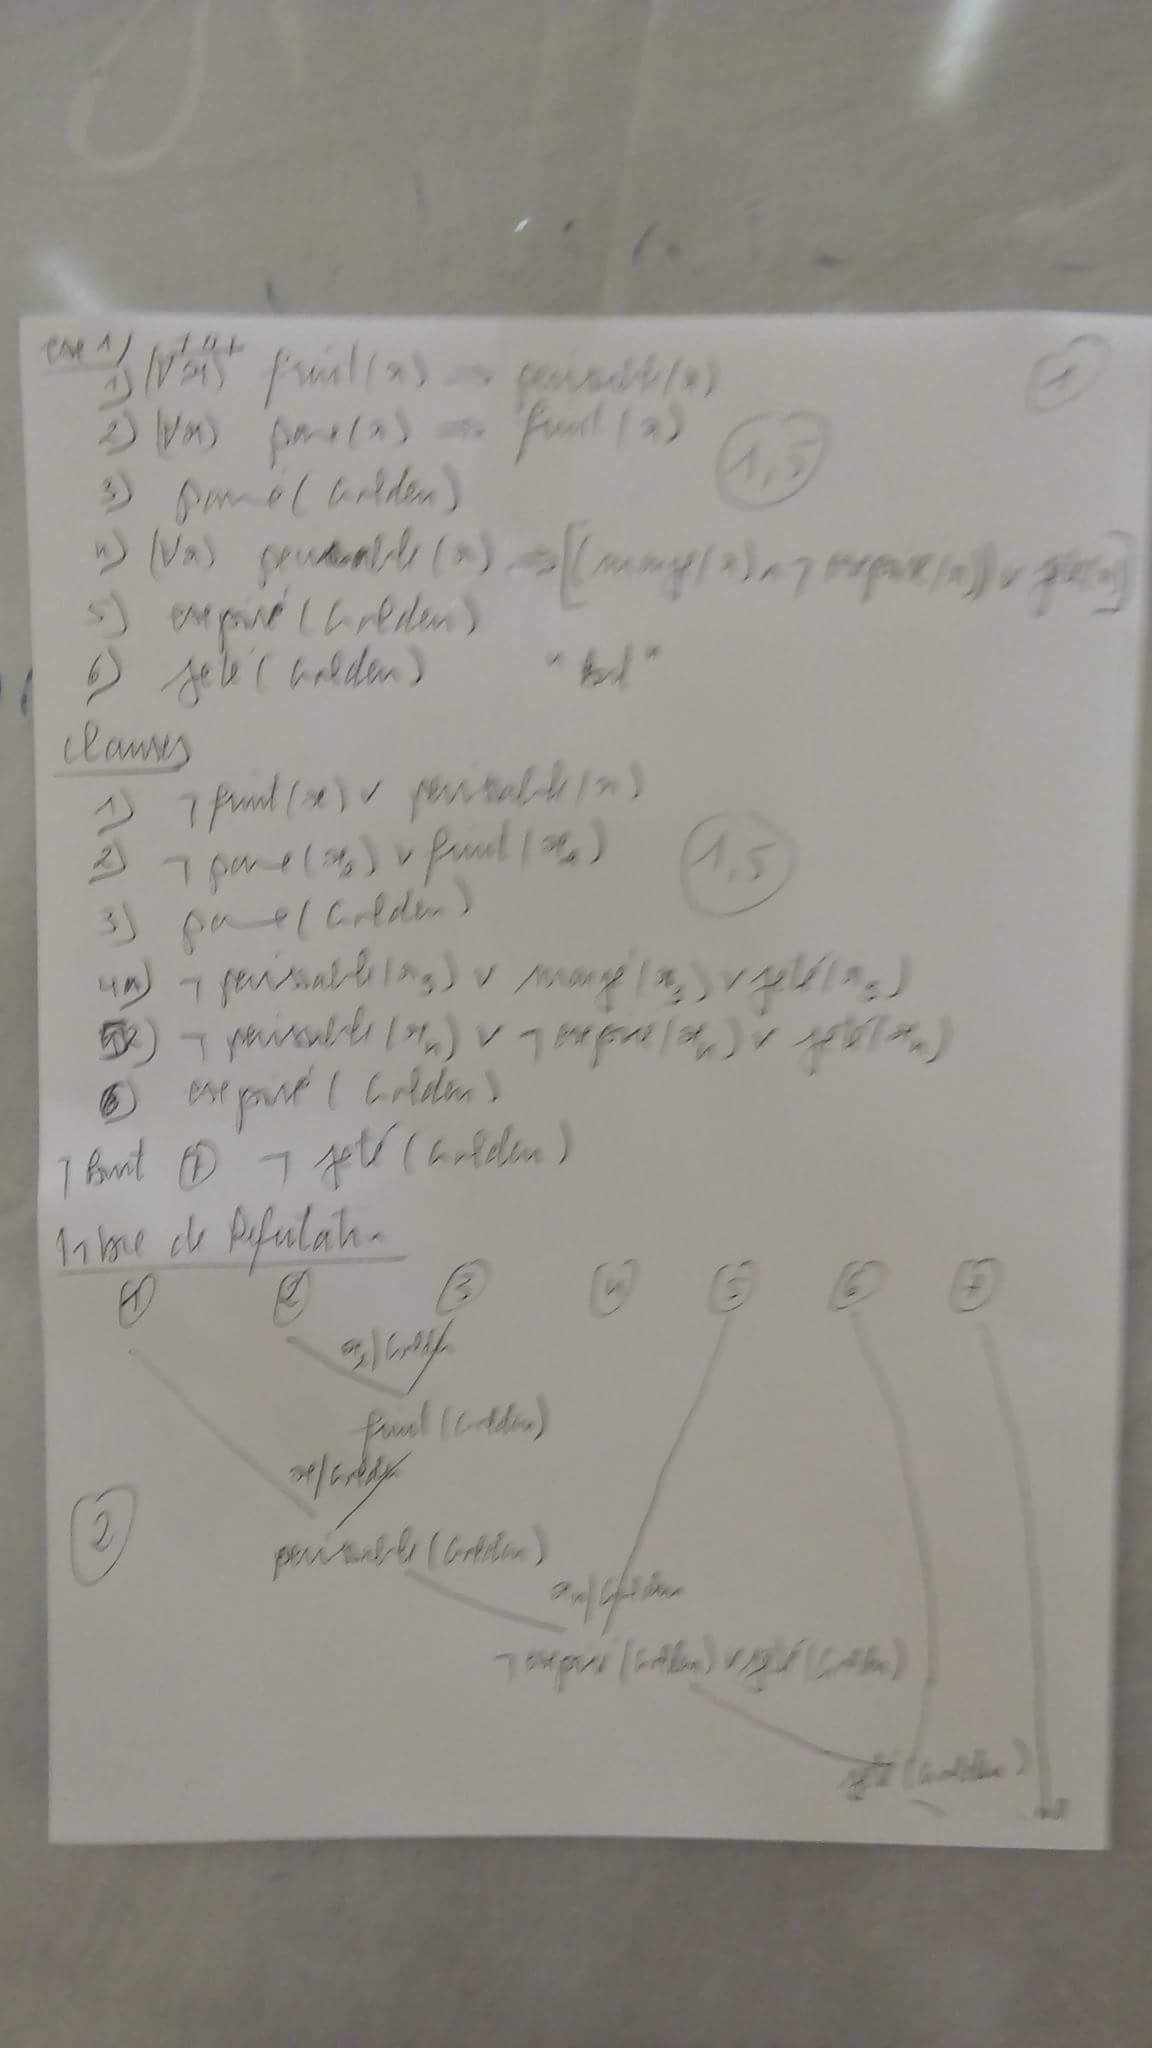 exe 1)
1) (∀x) fruit(x) ⇒ perissable(x)
1
2) (∀x) pome(x) ⇒ fruit(x)
1,5
3) pomé(Golden)
4) (∀x) perissable(x) ⇒ [(mangé(x) ∧ ¬ expiré(x)) ∨ jeté(x)]
5) expiré(Golden)
6) jeté(Golden) "But"
Clauses
1) ¬ fruit(x) ∨ perissable(x)
2) ¬ pome(x₂) ∨ fruit(x₂)
1,5
3) pome(Golden)
4) ¬ perissable(x₃) ∨ mangé(x₃) ∨ jeté(x₃)
5) ¬ perissable(x₄) ∨ ¬ expiré(x₄) ∨ jeté(x₄)
6) expiré(Golden)
¬ But 7 ¬ jeté(Golden)
Arbre de Refutati.
1 2 3 4 5 6 7
x₂/Golden
fruit(Golden)
x/Golden
2
perissable(Golden)
x₄/Golden
¬ expiré(Golden) ∨ jeté(Golden)
jeté(Golden)